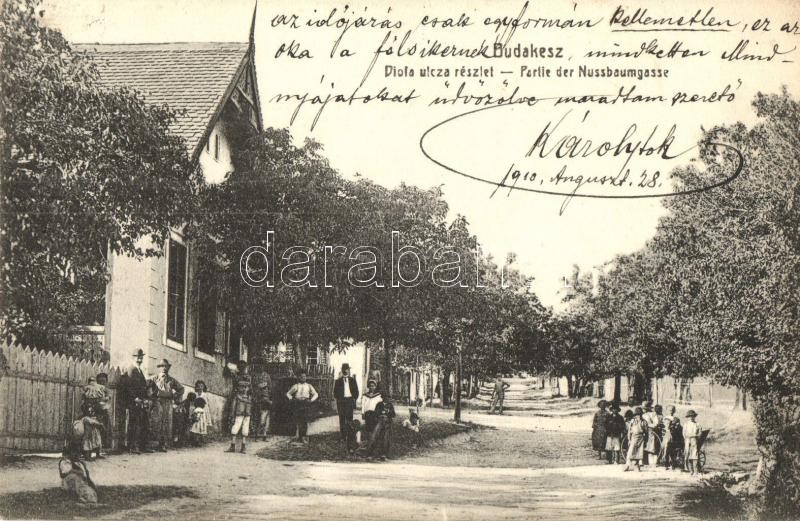 az időjárás csak egyformán kellemetlen, ez az
oka a fölsikernek, mindketten Mind-
Budakesz
Diófa utcza részlet — Partie der Nussbaumgasse
nyájatokat üdvözölve maradtam szerető
Károlytok
1910. Auguszt. 28.
darabanth